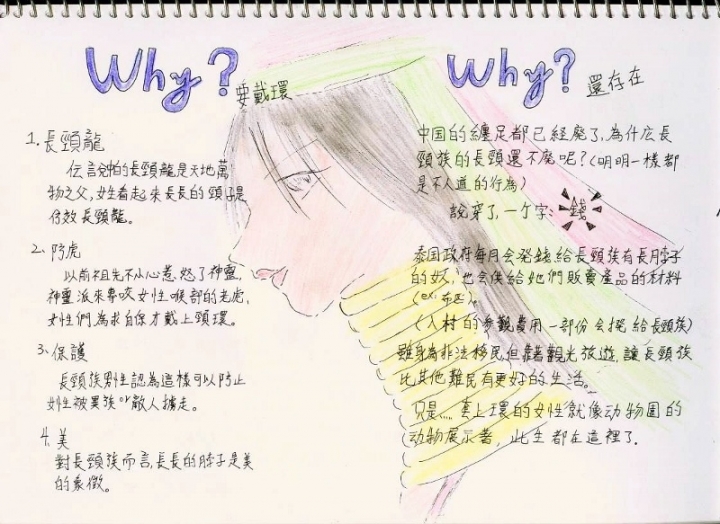 Why?
要戴環
1. 長頸龍
伝言雌的長頸龍是天地萬
物之父,女性看起來長長的頸子是
仿效長頸龍。
2. 防虎
以前祖先不小心惹怒了神靈,
神靈派來專咬女性喉部的老虎,
女性們為求自保才戴上頸環。
3. 保護
長頸族男性認為這樣可以防止
女性被異族or敵人擄走。
4. 美
對長頸族而言,長長的脖子是美
的象徵。
Why?
還存在
中国的纏足都已經廃了,為什広長
頸族的長頸還不廃呢?(明明一樣都
是不人道的行為)
說穿了,一个字:錢
泰国政府每月会発錢給長頸族有長脖子
的女人,也会供給她們販賣產品的材料
(ex: 布匹)。
(入村的参觀費用一部份会撥給長頸族)
雖身為非法移民但藉觀光旅遊,讓長頸族
比其他難民有更好的生活。
只是....套上環的女性就像动物園的
动物展示者,此生都在這裡了.